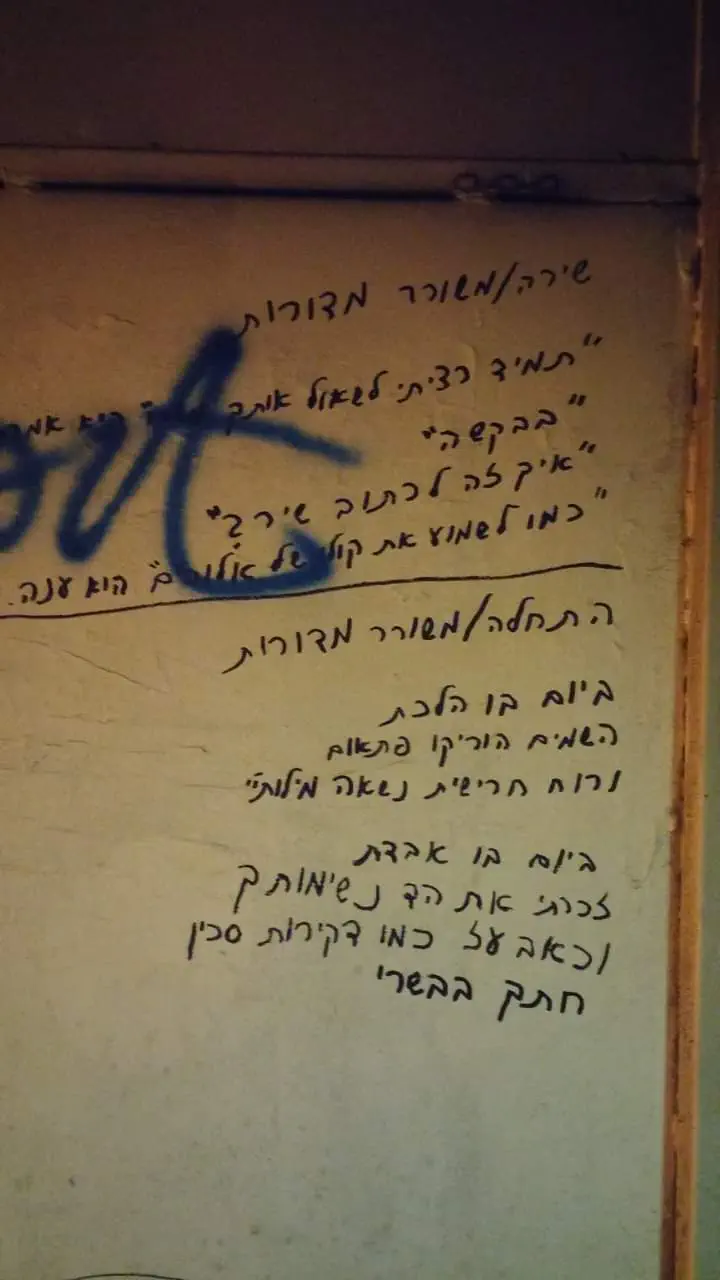 שירה/משורר מדורות
"תמיד רציתי לשאול אותך היא
"בבקשה"
"איך זה לכתוב שירך"
"כמו לשמוע את קולו של אלוהים" הוא ענה.
התחלה/משורר מדורות
ביום בו הלכת
השמים הוריקו פתאום
ורוח חרישית נשאה מילותיי
ביום בו אבדת
זכרתי את הד נשימותך
וכאב עז כמו דקירות סכין
חתך בבשרי